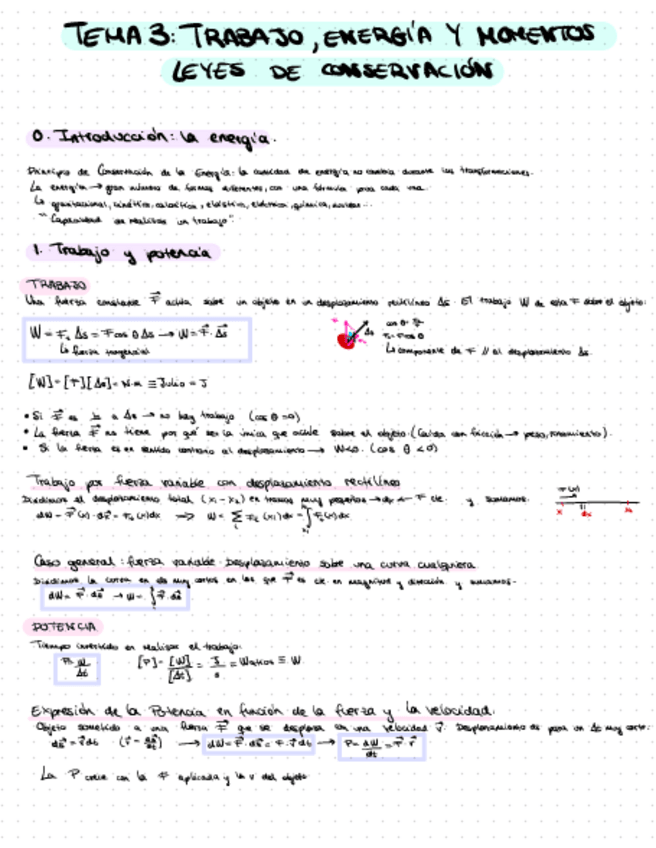 TEMA 3: TRABAJO, ENERGÍA Y MOMENTOS
LEYES DE CONSERVACIÓN
0. Introducción: la energía.
Principio de Conservación de la Energía: la cantidad de energía no cambia durante las transformaciones.
La energía → gran número de formas diferentes, con una fórmula para cada una.
↳ gravitacional, cinética, calorífica, elástica, eléctrica, química, nuclear...
"Capacidad de realizar un trabajo".
1. Trabajo y potencia
TRABAJO
Una fuerza constante F⃗ actúa sobre un objeto en un desplazamiento rectilíneo Δs. El trabajo W de esta F sobre el objeto:
W = Fₛ Δs = F cos θ Δs → W = F⃗ · Δs⃗
↳ fuerza tangencial
↳ componente de F // al desplazamiento Δs.
[W] = [F][Δs] = N·m ≡ Julio = J
• Si F⃗ es ⊥ a Δs → no hay trabajo (cos θ = 0)
• La fuerza F⃗ no tiene por qué ser la única que actúe sobre el objeto. (Caída con fricción → peso, rozamiento).
• Si la fuerza es en sentido contrario al desplazamiento → W<0. (cos θ < 0)
Trabajo por fuerza variable con desplazamiento rectilíneo
Dividimos el desplazamiento total (x₁ - x₂) en tramos muy pequeños → dx ← F cte. y sumamos.
F(x)
dx
Caso general: fuerza variable. Desplazamiento sobre una curva cualquiera
Dividimos la curva en ds muy cortos en los que F⃗ es cte. en magnitud y dirección y sumamos.
dW = F⃗ · ds⃗ → W = ∫ F⃗ · ds⃗
POTENCIA
Tiempo invertido en realizar el trabajo:
P = W/Δt [P] = [W]/[Δt] = J/s = Watios ≡ W
Expresión de la Potencia en función de la fuerza y la velocidad.
Objeto sometido a una fuerza F⃗ que se desplaza con una velocidad v⃗. Desplazamiento ds para un Δt muy corto:
ds⃗ = v⃗ dt (v⃗ = ds⃗/dt) → dW = F⃗ · ds⃗ = F · v⃗ dt → P = dW/dt = F⃗ · v⃗
La P crece con la F aplicada y la v del objeto